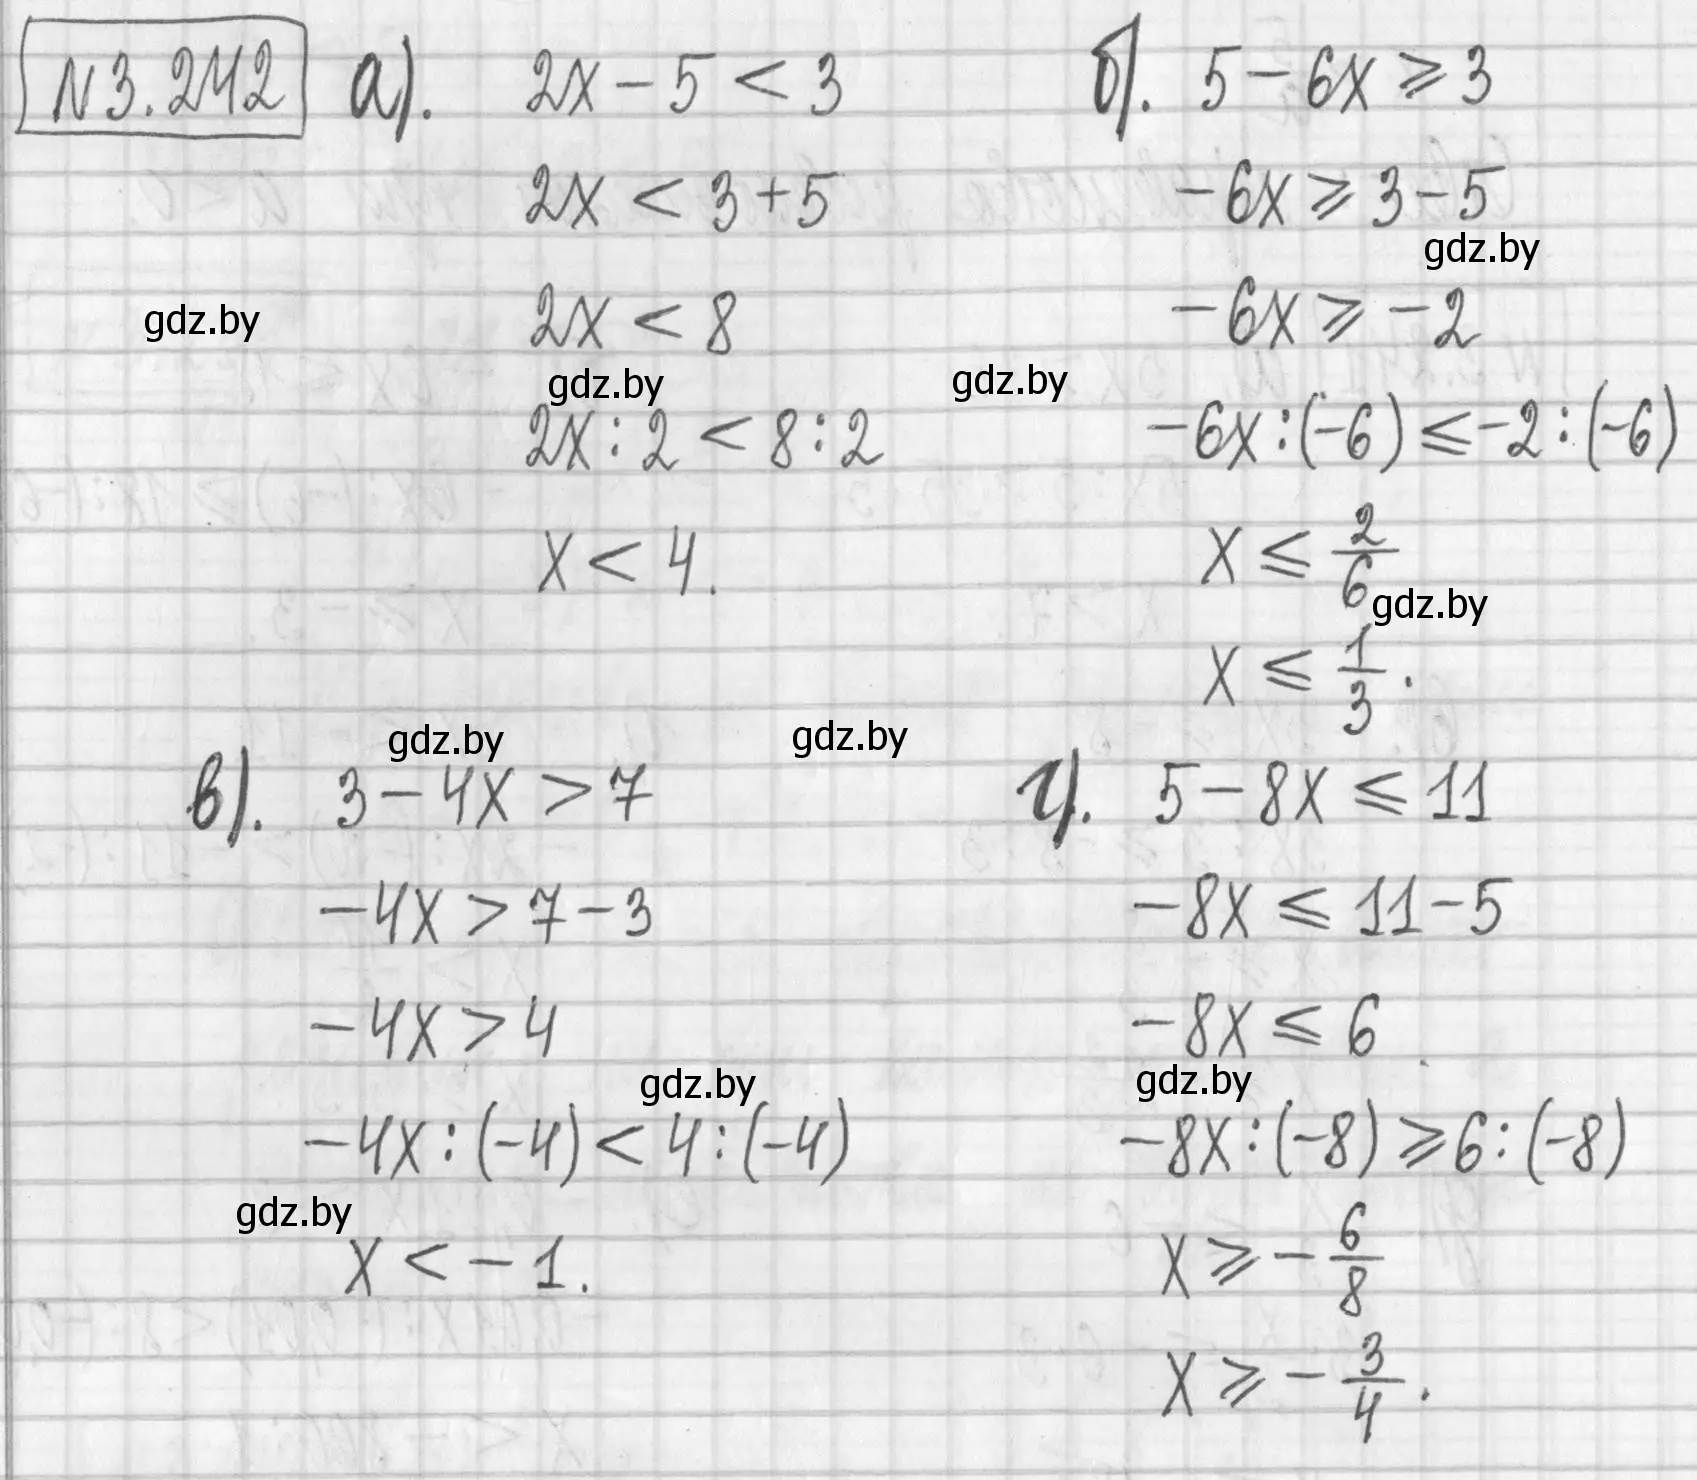 N3.242 а). 2x - 5 < 3
2x < 3 + 5
2x < 8
2x : 2 < 8 : 2
x < 4.
б). 5 - 6x ⩾ 3
-6x ⩾ 3 - 5
-6x ⩾ -2
-6x : (-6) ⩽ -2 : (-6)
x ⩽ 2/6
x ⩽ 1/3.
в). 3 - 4x > 7
-4x > 7 - 3
-4x > 4
-4x : (-4) < 4 : (-4)
x < -1.
г). 5 - 8x ⩽ 11
-8x ⩽ 11 - 5
-8x ⩽ 6
-8x : (-8) ⩾ 6 : (-8)
x ⩾ -6/8
x ⩾ -3/4.
gdz.by
gdz.by
gdz.by
gdz.by
gdz.by
gdz.by
gdz.by
gdz.by
gdz.by
gdz.by